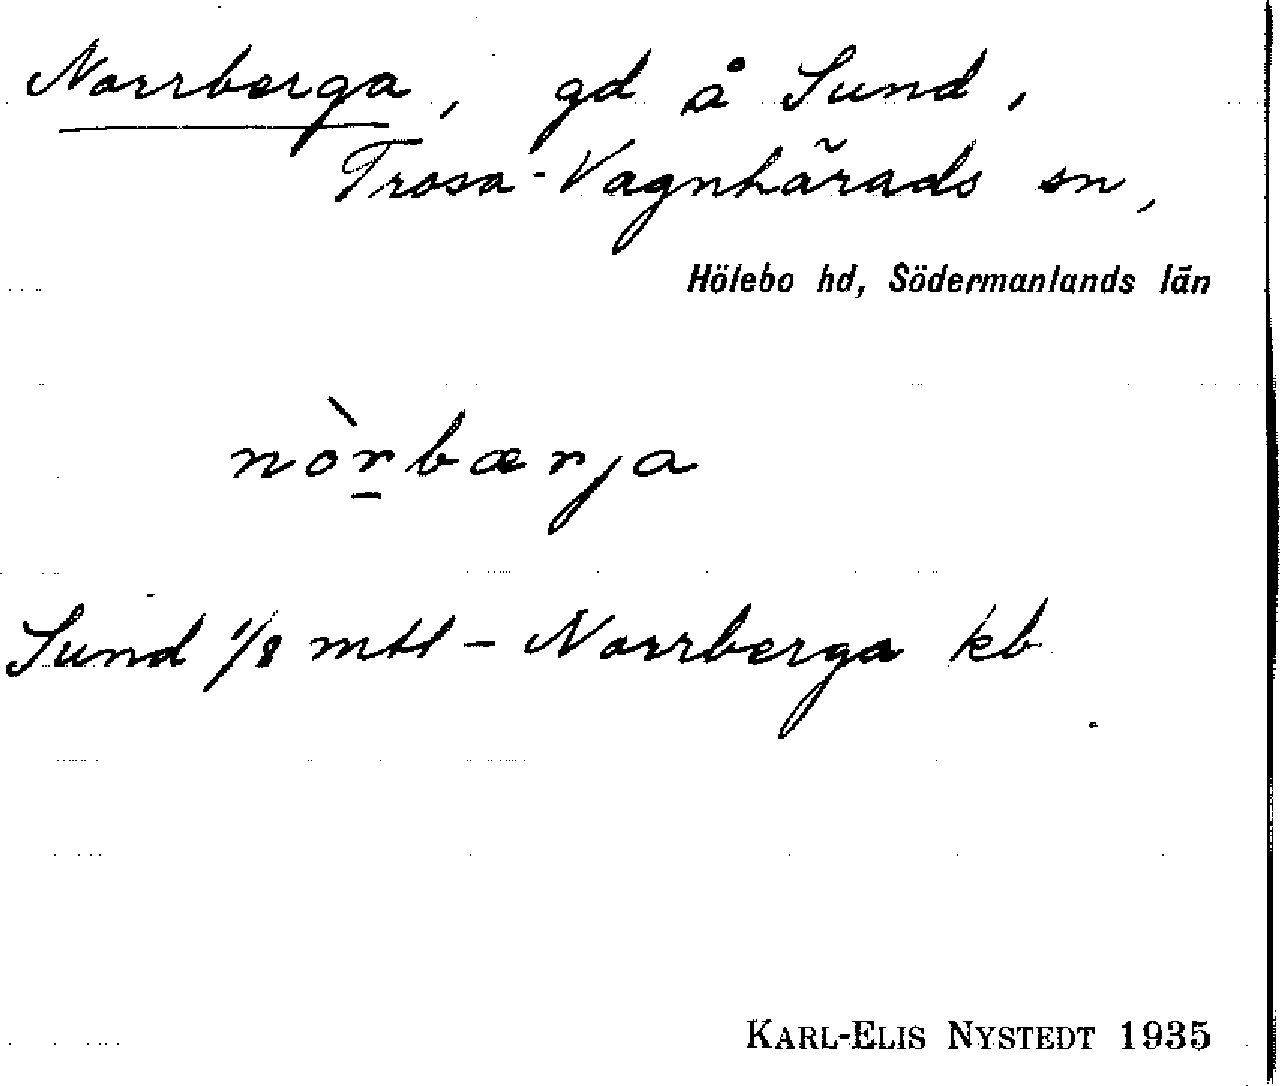 Norrberga, gd å Sund,
Trosa-Vagnhärads sn,
Hölebo hd, Södermanlands län
nòr̠bærja
Sund 1/8 mtl - Norrberga kb
KARL-ELIS NYSTEDT 1935